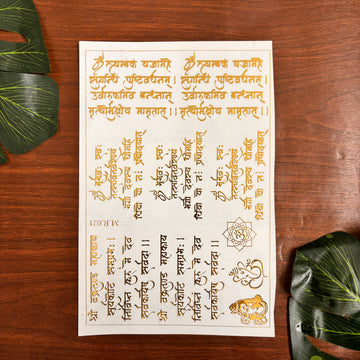 ॐ त्र्यम्बकं यजामहे
सुगन्धिं पुष्टिवर्धनम् ।
उर्वारुकमिव बन्धनात्
मृत्योर्मुक्षीय मामृतात् ।।
ॐ त्र्यम्बकं यजामहे
सुगन्धिं पुष्टिवर्धनम् ।
उर्वारुकमिव बन्धनात्
मृत्योर्मुक्षीय मामृतात् ।।
ॐ भूर्भुवः स्वः
तत्सवितुर्वरेण्यं
भर्गो देवस्य धीमहि
धियो यो नः प्रचोदयात्
ॐ भूर्भुवः स्वः
तत्सवितुर्वरेण्यं
भर्गो देवस्य धीमहि
धियो यो नः प्रचोदयात्
ॐ भूर्भुवः स्वः
तत्सवितुर्वरेण्यं
भर्गो देवस्य धीमहि
धियो यो नः प्रचोदयात्
M.R.021
श्री वक्रतुण्ड महाकाय
सूर्यकोटि समप्रभः ।
निर्विघ्नं कुरु मे देव
सर्वकार्येषु सर्वदा ।।
श्री वक्रतुण्ड महाकाय
सूर्यकोटि समप्रभः ।
निर्विघ्नं कुरु मे देव
सर्वकार्येषु सर्वदा ।।
ॐ